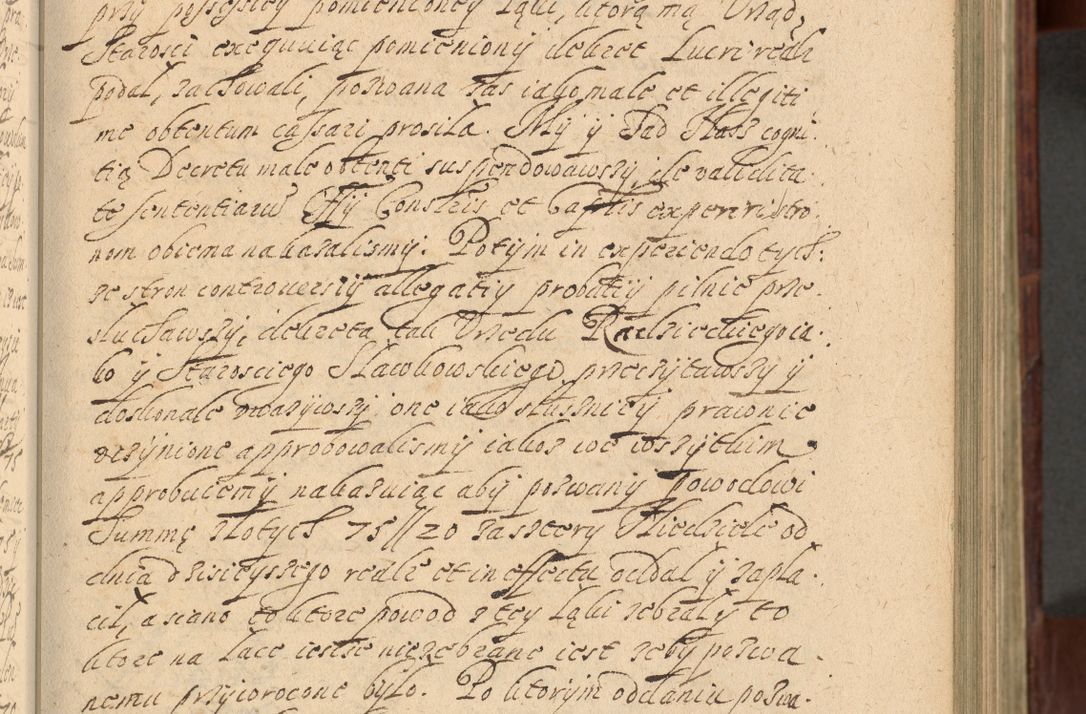 przy possessiey pomienioney Łąki, ktorą ma Urząd
Starosci exequuiąc pomieniony dekret Lucri reale
podał, zachowali, pozwana zas iako male et illegiti
me obtentum cassari prosiła. My y Sąd Nasz cogni
tią Decretu male obtenti suspendowawszy, de validita
te sententiarū experiri stro
nom obiema nakazalismy. Potym in experiendo tych
ze stron controuersiy allegatiy probatiy pilnie prze
słuchawszy, dekreta tak Urzędu Radzieckiego ia
ko y Starosciego Sławkowskiego przeczytawszy y
doskonale uwazywszy one iako słusznie y prawnie
uczynione approbowalismy iakoz we wszytkim
approbuiemy nakazuiąc aby pozwany Powodowi
Summę złotych 75 // 20 za sztery Niedziele od
dnia dzisieyszego reale et in effectu oddał y zapła
cił, a siano to ktore powod z tey Łąki zebrał y to
ktore na Łące iescze niezebrane iest zeby pozwa
nemu przywrocone było. Po ktorym oddaniu pozwa